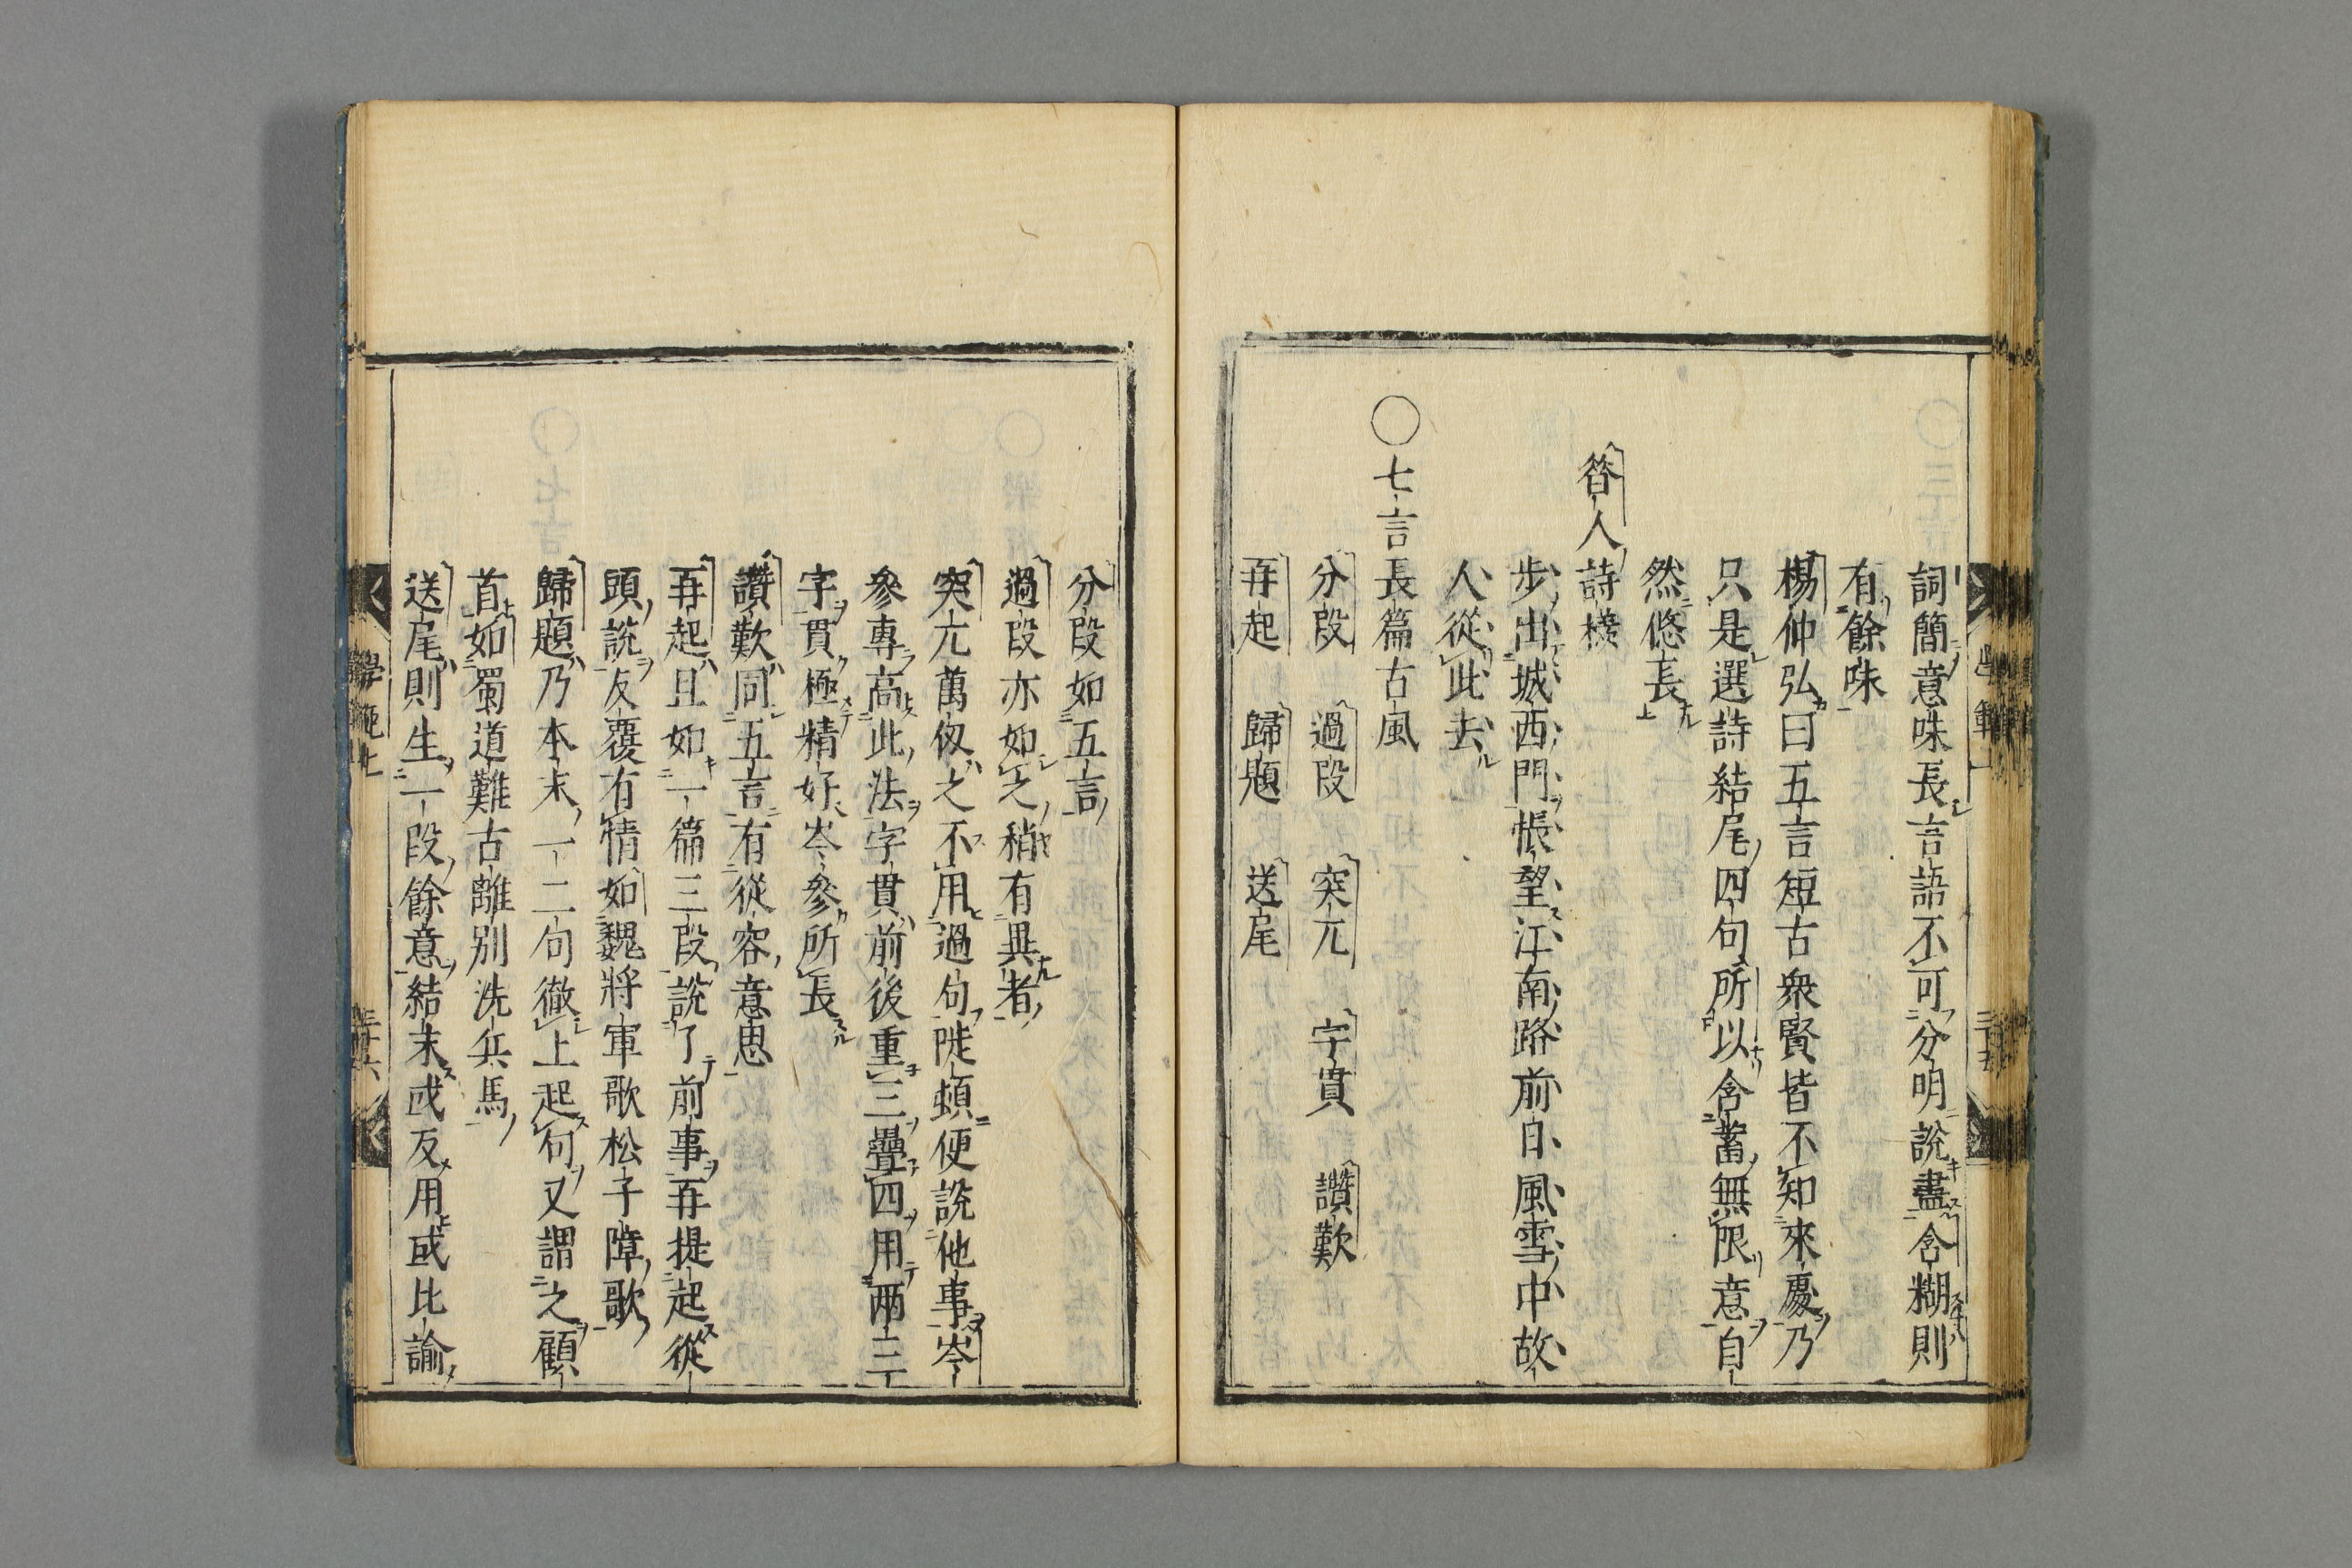 詞簡意味長言語不可分明說盡含糊則
有餘味
楊仲弘曰五言短古衆賢皆不知來處乃
只是選詩結尾四句所以含蓄無限意自
然悠長
答人詩樣
步出城西門悵望江南路前日風雪中故
人從此去
○七言長篇古風
分段 過段 突兀 字貫 讚歎
再起 歸題 送尾
分段如五言
過段亦如之稍有異者
突兀萬仭之不用過句陡頓便說他事岑
參專高此法字貫前後重三疊四用兩三
字貫極精好岑參所長
讚歎同五言有從容意思
再起且如一篇三段說了前事再提起從
頭說反覆有情如魏將軍歌松子障歌
歸題乃本末一二句徹上起句又謂之顧
首如蜀道難古離別洗兵馬
送尾則生一段餘意結末或反用或比諭
學範上
三十六